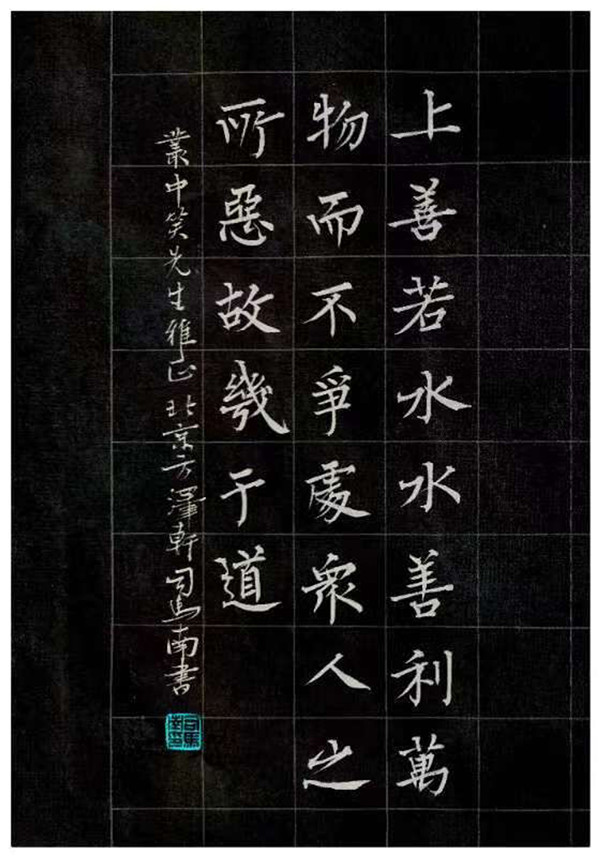 上善若水水善利萬
物而不爭處衆人之
所惡故幾于道
叢中笑先生雅正北京方澤軒司馬南書